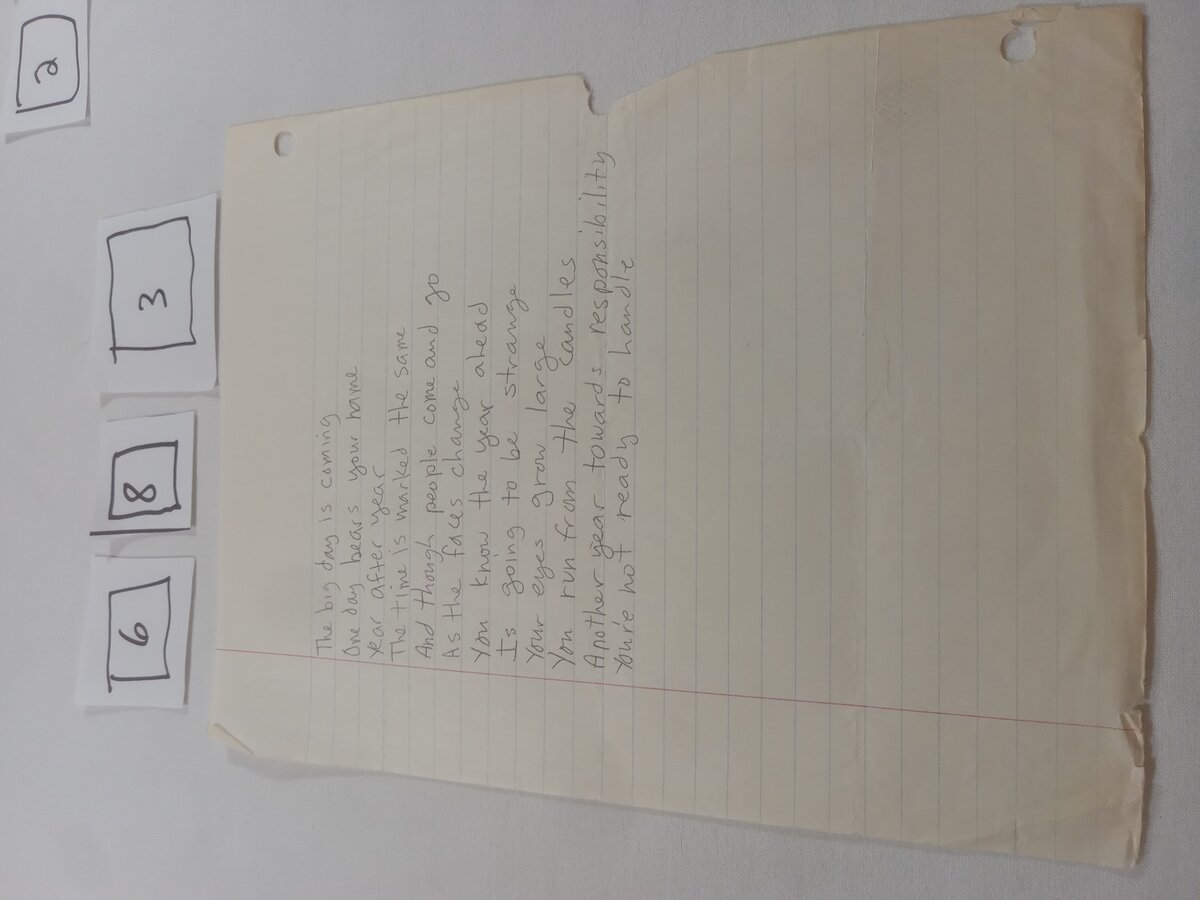 6
8
3
2
The big day is coming
One day bears your name
Year after year
The time is marked the same
And though people come and go
As the faces change
You know the year ahead
Is going to be strange
Your eyes grow large
You run from the candles
Another year towards responsibility
You're not ready to handle